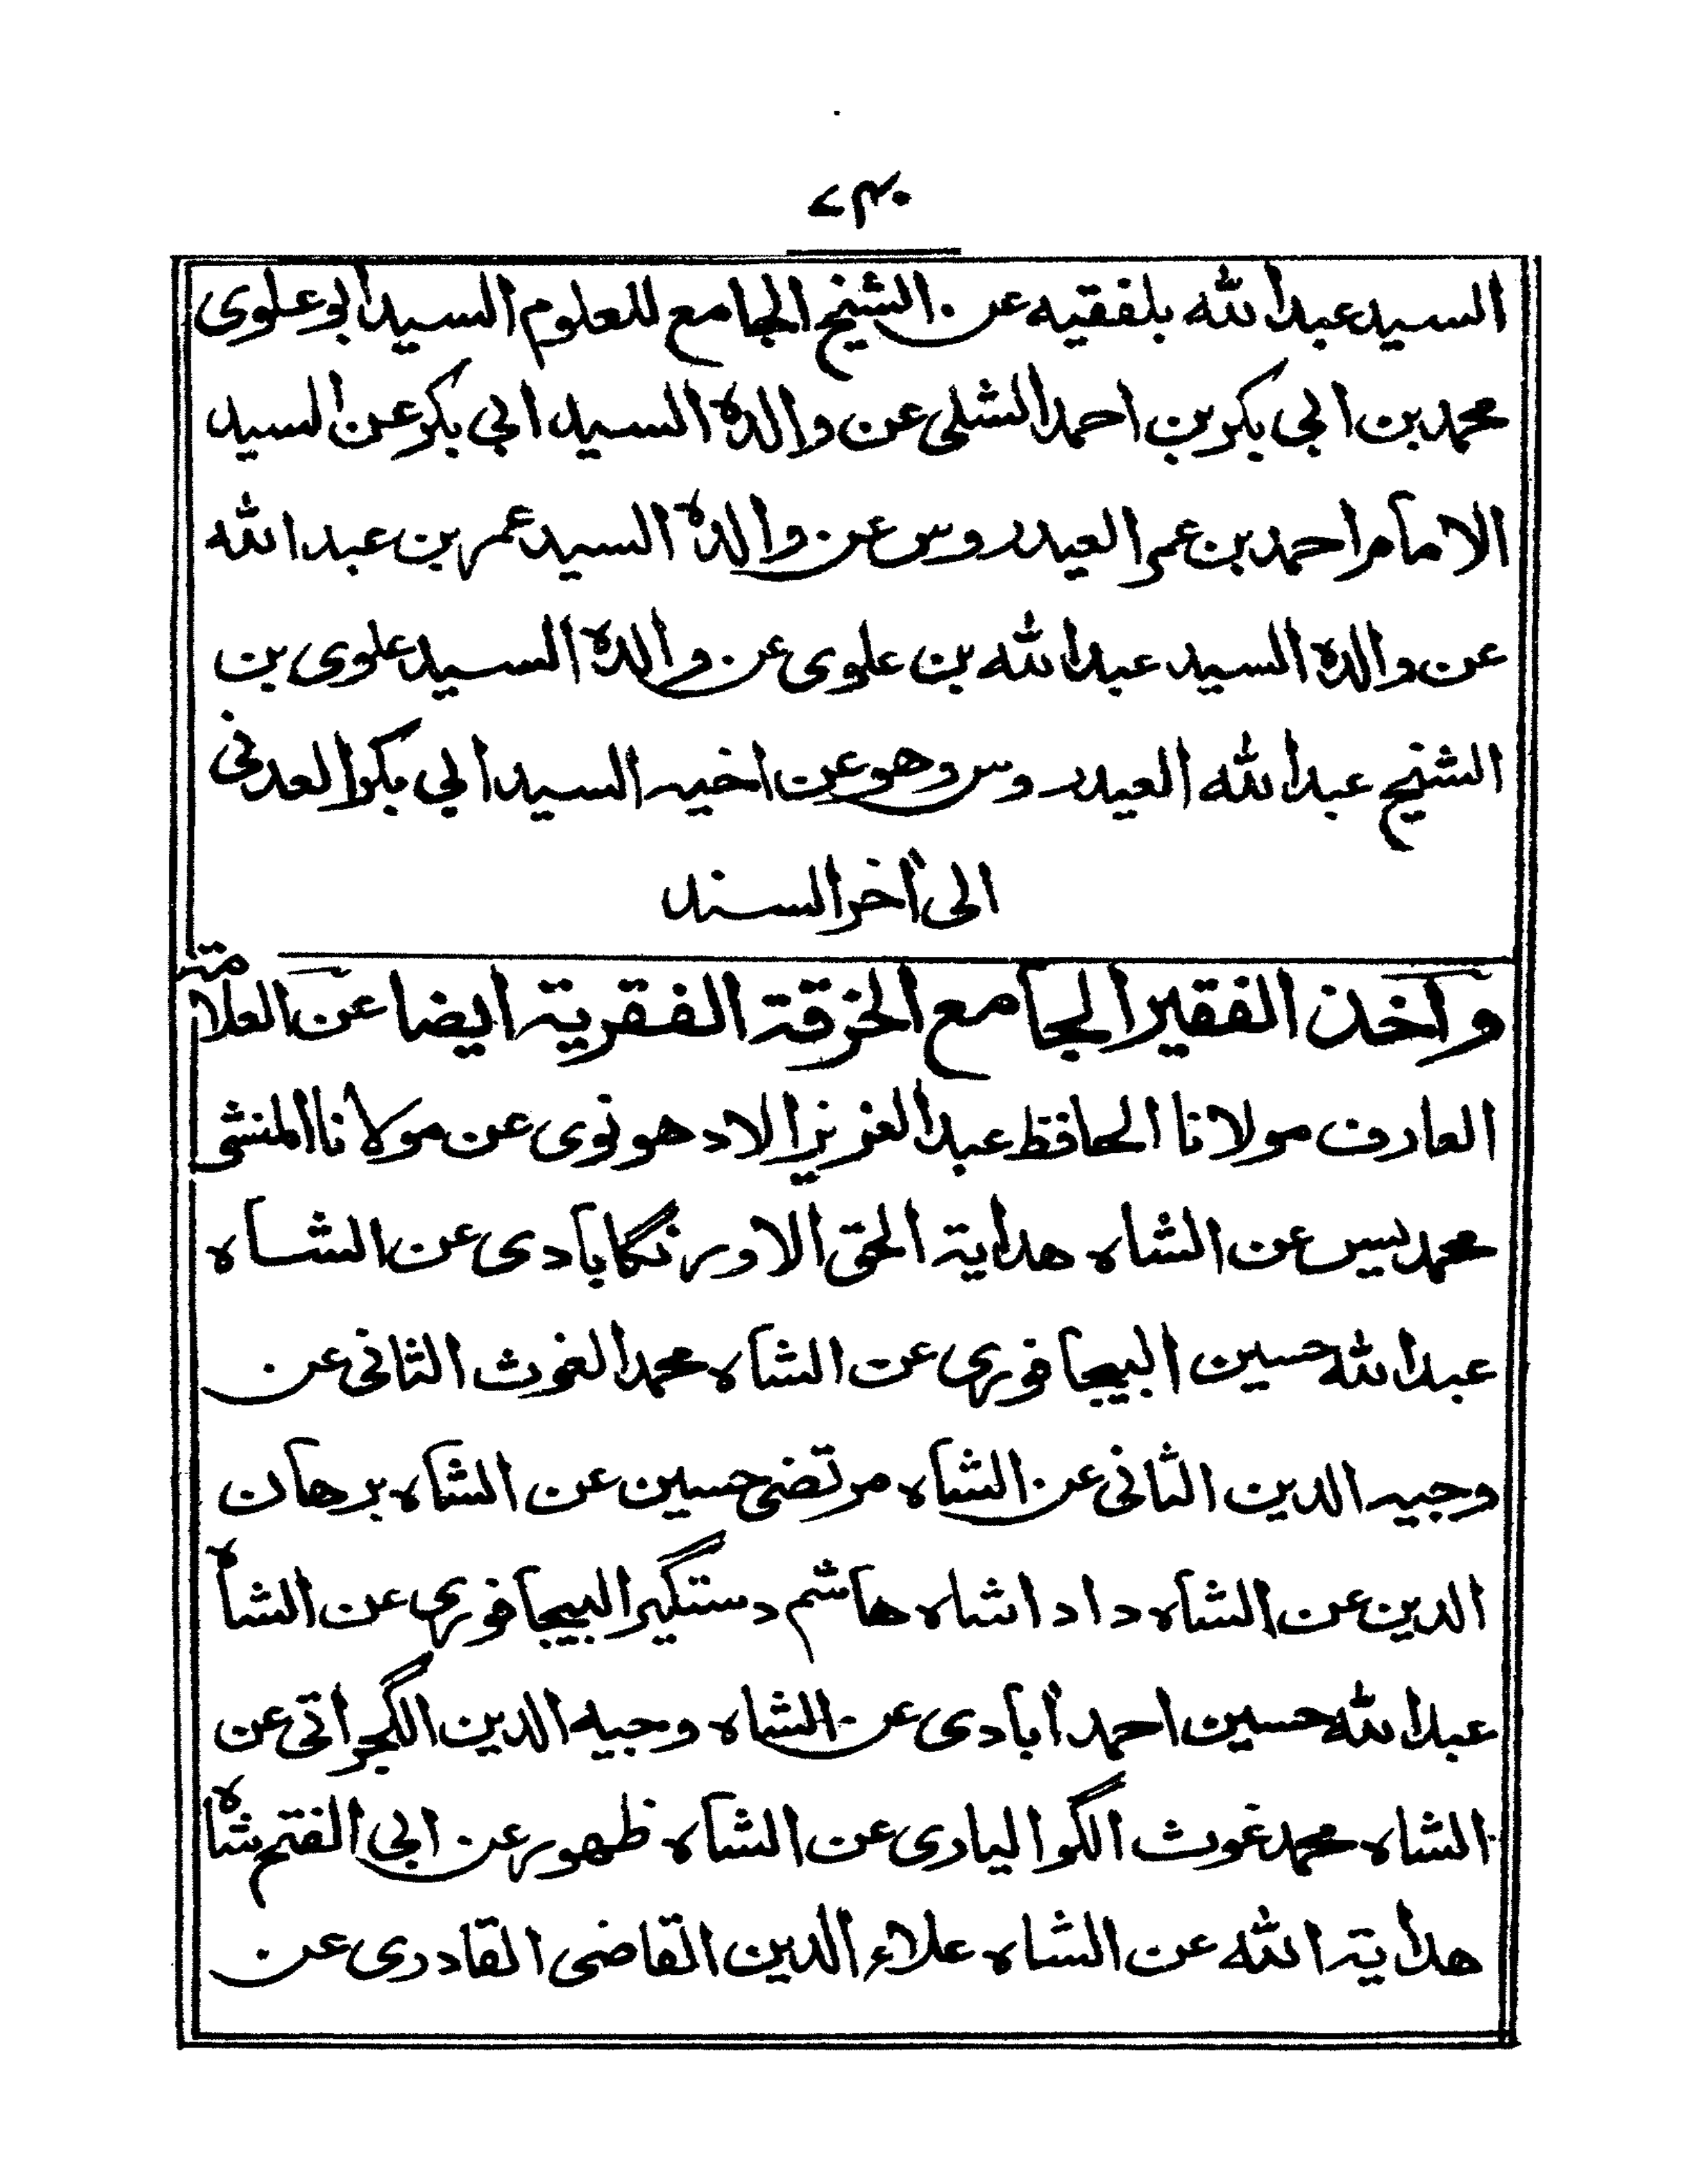 السيد عبد الله بلفقيه عن الشيخ الجامع للعلوم السيد ابو علوى
محمد بن ابي بكر بن احمد الشلى عن والده السيد ابي بكر عن السيد
الامام احمد بن عمر العيدروس عن والده السيد عمر بن عبد الله
عن والده السيد عبد الله بن علوى عن والده السيد علوى بن
الشيخ عبد الله العيدروس وهو عن اخيه السيد ابي بكر العدنى
الى آخر السند
وآخذ الفقير الجامع الخرقة الفقرية ايضا عن العلامة
العارف مولانا الحافظ عبد العزيز الادهونوى عن مولانا المنشى
محمد يس عن الشاه هداية الحق الاورنگابادى عن الشاه
عبد الله حسين البيجافورى عن الشاه محمد الغوث الثانى عن
وجيه الدين الثانى عن الشاه مرتضى حسين عن الشاه برهان
الدين عن الشاه داداشاه هاشم دستگير البيجافورى عن الشاه
عبد الله حسين احمد آبادى عن الشاه وجيه الدين الگجراتى عن
الشاه محمد غوث الگواليارى عن الشاه ظهور عن ابي الفتح شاه
هداية الله عن الشاه علاء الدين القاضى القادرى عن